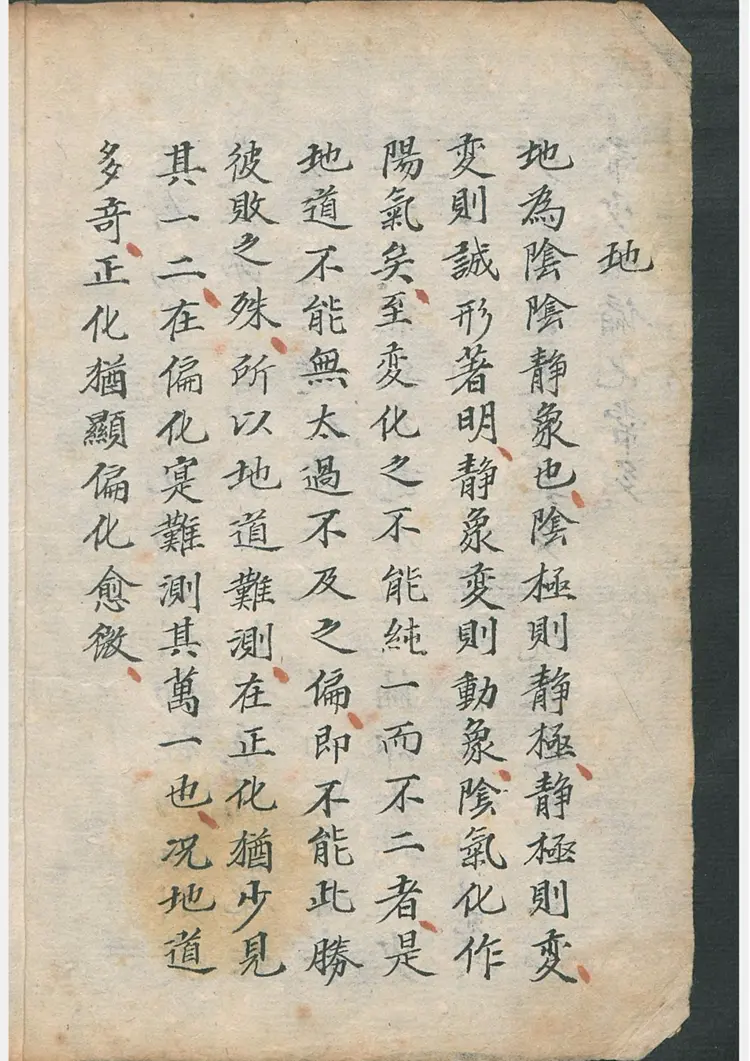 地
地為陰陰静象也、陰極則静極、静極則変、
変則誠形著明、静象変則動象、陰氣化作
陽氣矣、至変化之不能純一而不二者、是
地道不能無太過不及之偏、即不能此勝
彼敗之殊、所以地道難測、在正化猶少見
其一二、在偏化寔難測其萬一也、况地道
多竒、正化猶顯偏化愈微、